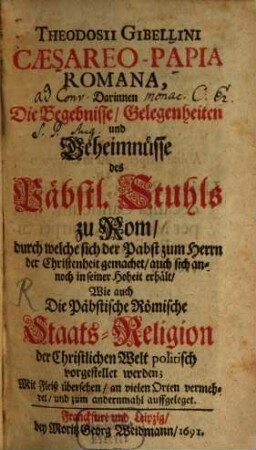 THEODOSII GIBELLINI
CÆSAREO-PAPIA
ROMANA,
ad Conv. Darinnen monac.
Die Begebnisse/ Gelegenheiten
und
Geheimnüsse
des
Päbstl. Stuhls
zu Rom/
durch welche sich der Pabst zum Herrn
der Christenheit gemachet/ auch sich an-
noch in seiner Hoheit erhält/
R
Wie auch
Die Päbstische Römische
Staats-Religion
der Christlichen Welt politisch
vorgestellet werden;
Mit Fleiß übersehen/ an vielen Orten vermeh-
ret/ und zum andernmahl auffgeleget.
Franckfurt und Leipzig/
bey Moritz Georg Weidmann/ 1691.